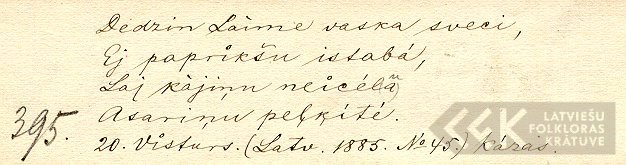 Dedzin Láime vaska sveci,
Ej papríkšu istabá,
Laj kájiņu neícélã
395. Asariņu peļķíté.
20. Vísturs. (Latv. 1885. No 45.) kázas.
LATVIEŠU
FOLKLORAS
KRĀTUVE